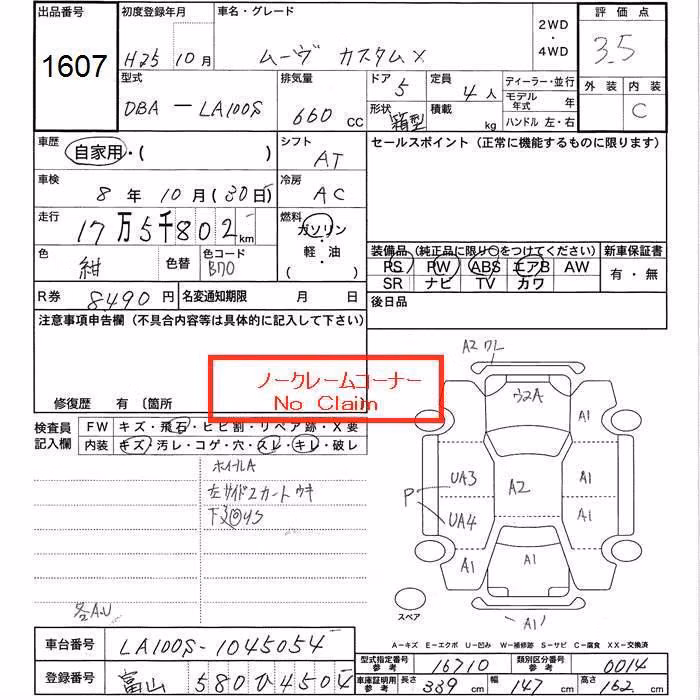 出品番号 初度登録年月 車名・グレード 2WD ・ 4WD 評価点
1607 H25 10月 ムーヴ カスタムX 3.5
型式 排気量 ドア 5 定員 4人 ディーラー・並行 外装 内装
DBA - LA100S 660 CC 形状 箱型 積載 kg モデル年式 年 C
ハンドル 左・右
車歴 シフト セールスポイント (正常に機能するものに限ります)
自家用・( ) AT
車検 冷房
8年 10月 (30日) AC
走行 燃料
17万5千802km ガソリン
色 色替 色コード ・
紺 B70 軽・油
( )
装備品 (純正品に限り○をつけてください) 新車保証書
PS PW ABS エアB AW 有・無
SR ナビ TV カワ
R券 8,490円 名変通知期限 月 日 後日品
注意事項申告欄 (不具合内容等は具体的に記入して下さい)
ノークレームコーナー
No Claim
修復歴 有 〔箇所
検査員記入欄 FW キズ・飛石・ヒビ割・リペア跡・X要
内装 キズ・汚レ・コゲ・穴・スレ・キレ・破レ
ホイールA
左サイド2カート ウキ
各A.U
A2 ワレ
ワ2A
A1
UA3 A2 A1
P
UA4 A1
A1 A1
A1
スペア
A-キズ E-エクボ U-凹み W-補修跡 S-サビ C-腐食 XX-交換済
車台番号 LA100S-1045054
型式指定番号 参考 16710 類別区分番号 参考 0014
登録番号 富山 580 ひ 4504
車庫証明用 参考 長さ 339 cm 幅 147 cm 高さ 162 cm